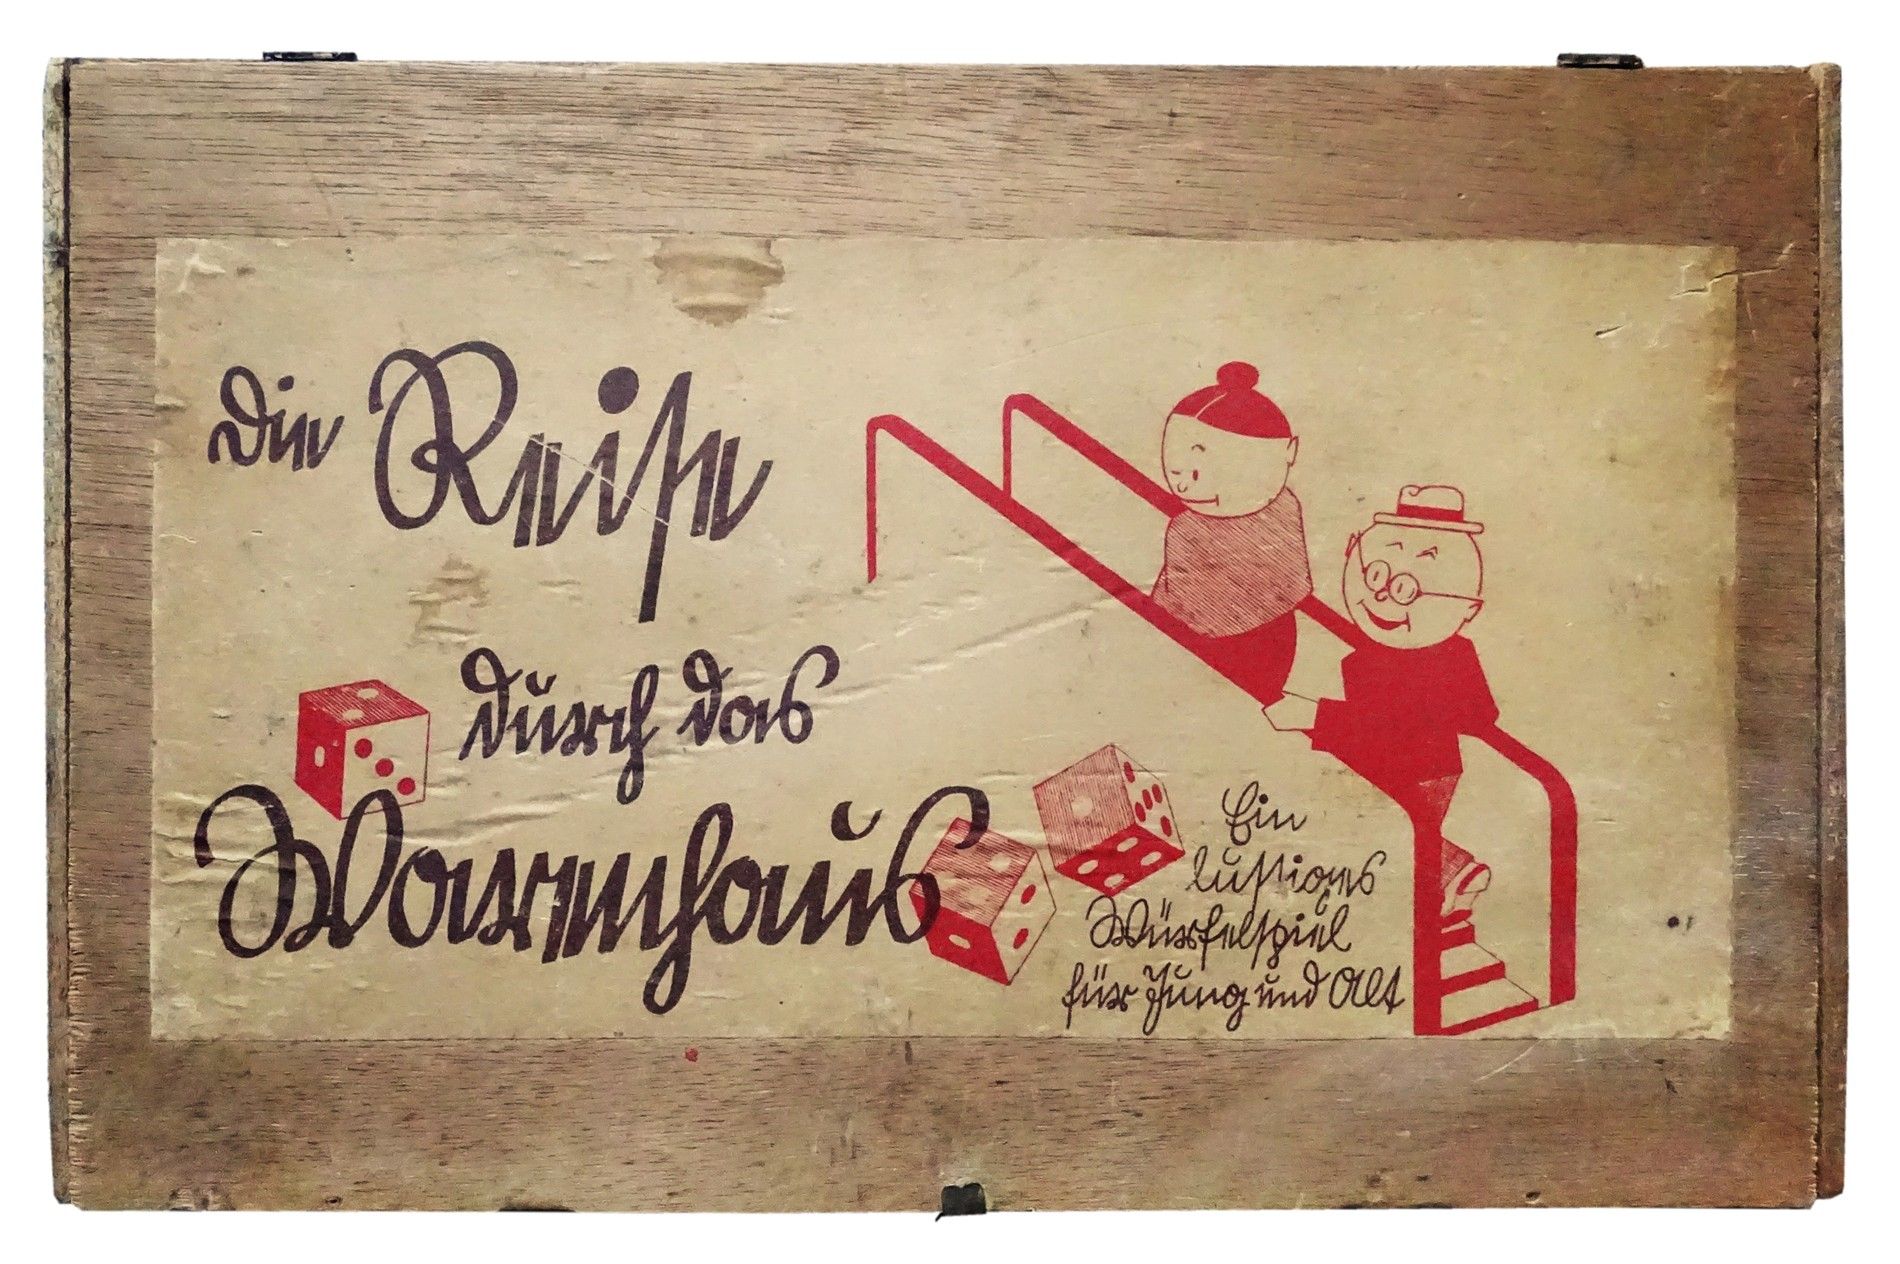 Die Reise
durch das
Warenhaus
Ein
lustiges
Würfelspiel
für Jung und Alt